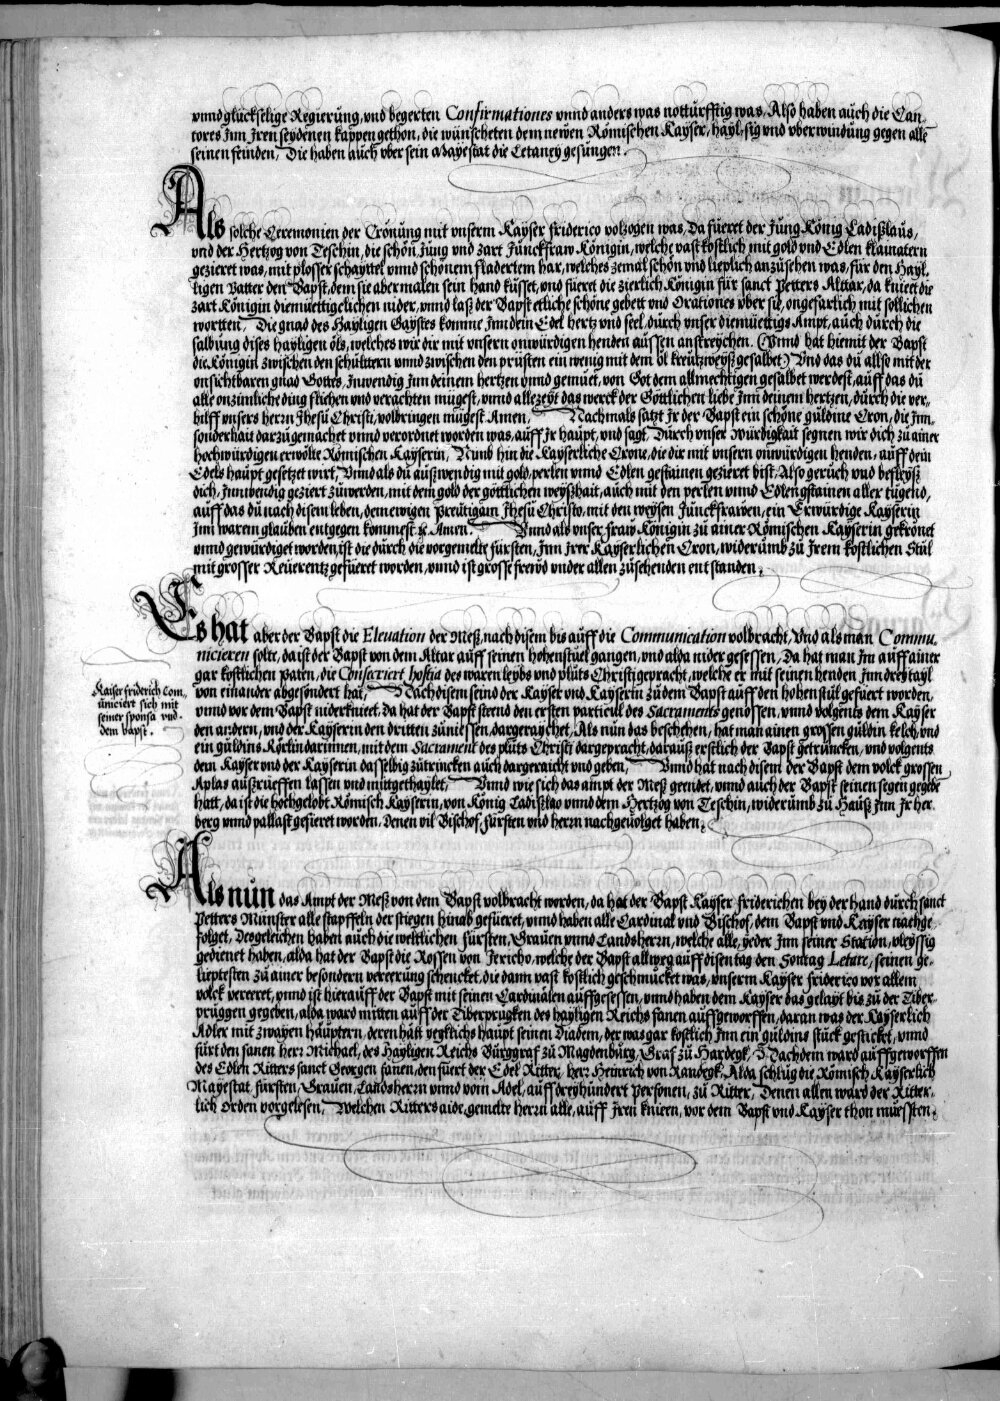 vnnd glückselige Regierung, vnd begerten Confirmationes vnnd anders was notturfftig was, Also haben auch die Can-
tores Inn Iren seydenen kappen gethon, die wünscheten dem newen Römischen Kayser, hayl, sig vnd vberwindung gegen alle
seinen feinden, Die haben auch vber sein Mayestat die Letaney gesungen.
Als solche Ceremonien der Crönung mit vnserm Kayser friderico volzogen was, Da füeret der Jung König Ladißlaus,
vnd der Hertzog von Teschin, die schön Jung vnd zart Junckfraw Königin, welche vast kostlich mit gold vnd Edlen klainatern
gezieret was, mit plosser schayttel vnnd schönem fladertem har, welches zemal schön vnd lieplich anzusehen was, für den Hayl-
ligen Vatter den Bapst, dem sie abermalen sein hand küsset, vnd füeret die zierlich Königin für sanct Petters Alttar, da knieet die
zart Königin diemüettigelichen nider, vnnd laß der Bapst etliche schöne gebett vnd Orationes vber sie, ongefarlich mit sollichen
wortten, Die gnad des Hayligen Gaystes komme Inn dein Edel hertz vnd seel, durch vnser diemüettigs Ampt, auch durch die
salbung dises hayligen öls, welches wir dir mit vnsern onwürdigen henden aussen anstreychen. (Vnnd hat hiemit der Bapst
die Königin zwischen den schulttern vnnd zwischen den prüsten ein wenig mit dem öl kreutzweyß gesalbet) Vnd das du allso mit der
onsichtbaren gnad Gottes, Inwendig Inn deinem hertzen vnnd gemüet, von Got dem allmechtigen gesalbet werdest, auff das du
alle onzimliche ding fliehen vnd verachten mugest, vnnd allezeyt das werck der Göttlichen liebe Inn deinem hertzen, durch die ver-
hilff vnsers herrn Jhesu Christi, volbringen mugest Amen, Nachmals satzt Jr der Bapst ein schöne güldine Cron, die Inn-
sonderhait darzu gemachet vnnd verordnet worden was, auff Jr haupt, vnd sagt, Durch vnser Würdigkait segnen wir dich zu ainer
hochwürdigen erwölte Römischen Kayserin, Nimb hin die Kayserliche Crone, die dir mit vnsern onwürdigen henden, auff dein
Edels haupt gesetzet wirt, Vnnd als du außwendig mit gold, perlen vnnd Edlen gestainen gezieret bist, Also geruch vnd befleyß
dich, Innwendig geziert zuwerden, mit dem gold der göttlichen weyßhait, auch mit den perlen vnnd Edlengstainen aller tugend,
auff das du nach disem leben, dem ewigen Preutigam Jhesu Christo, mit den weysen Junckfrawen, ein Erwürdige Kayserin
Inn warem glauben entgegen kommest &c Amen. Vnnd als vnser fraw Königin zu ainer Römischen Kayserin gekrönet
vnnd gewürdiget worden, ist die durch die vorgemelte fürsten, Inn Jrer Kayserlichen Cron, widerumb zu Jrem kostlichen Stul
mit grosser Reuerentz gefüeret worden, vnnd ist grosse frewd vnder allen zusehenden entstanden.
Es hat aber der Bapst die Eleuation der Meß, nach disem bis auff die Communication volbracht, Vnd als man Commu-
nicieren solte, da ist der Bapst von dem Altar auff seinen hohenstuel gangen, vnd alda nider gesessen, Da hat man Im auff ainer
gar kostlichen paten, die Consecriert hostia des waren leybs vnd pluts Christi gepracht, welche er mit seinen henden Inn drey tayl
von einander abgesondert hat, Nachdisem seind der Kayser vnd Kayserin zu dem Bapst auff den hohenstul gefüert worden,
vnnd vor dem Bapst niderknieet, da hat der Bapst steend den ersten particul des Sacraments genossen, vnnd volgents dem Kayser
den andern, vnd der Kayserin den dritten zuniessen, dargeraychet, Als nun das beschehen, hat man ainen grossen guldin kelch, vnd
ein guldins Rörlin darinnen, mit dem Sacrament des pluts Christi dargepracht, darauß erstlich der Bapst getruncken, vnd volgents
dem Kayser vnd der Kayserin dasselbig zutrincken auch dargeraicht vnd geben, Vnnd hat nach disem der Bapst dem volck grossen
Aplas außrueffen lassen vnd mittgethaylet, Vnnd wie sich das ampt der Meß geendet, vnnd auch der Bapst seinen segen gegebe
hatt, da ist die hochgelobt Römisch Kayserin, von König Ladißlao vnnd dem Hertzog von Teschin, widerumb zu Hauß Inn Jr her-
berg vnnd pallast gefieret worden, Denen vil Bischof, fürsten vnd herrn nachgeuolget haben.
Kaiser friderich Com-
uniciert sich mit
seiner sponsa vnd
dem bapst.
Als nun das Ampt der Meß von dem Bapst volbracht worden, da hat der Bapst Kayser friderichen bey der hand durch sanct
Petters Münster alle stapffeln der stiegen hinab gefüeret, vnnd haben alle Cardinal vnd Bischof, dem Bapst vnd Kayser nachge-
folget, Desgeleichen haben auch die welttlichen fürsten, Grauen vnnd Landsherrn, welche alle, yeder Inn seiner Station, vleyssig
gedienet haben, alda hat der Bapst die Rossen von Jericho, welche der Bapst allweg auff disen tag den Sontag Letare, seinen ge-
lieptesten zu ainer besondern vereerung schencket, die dann vast kostlich geschmucket was, vnserm Kayser friderico vor allem
volck vereret, vnnd ist hierauff der Bapst mit seinen Cardinälen auffgesessen, vnnd haben dem Kayser das gelayt bis zu der Tiber-
pruggen gegeben, alda ward mitten auff der Tiberprugken des hayligen Reichs fanen auffgeworffen, daran was der Kayserlich
Adler mit zwayen häuptern, deren hatt yegklichs haupt seinen Diadem, der was gar kostlich Inn ein güldins stuck gesticket, vnnd
fürt den fanen herr Michael, des Hayligen Reichs Burggraf zu Magdenburg, Graf zu Hardegk, Nachdem ward auffgeworffen
des Edlen Ritters sanct Georgen fanen, den füert der Edel Ritter, herr Heinrich von Randegk, Alda schlug die Römisch Kayserlich
Mayestat, fürsten, Grauen, Landsherrn vnnd vom Adel, auff dreyhundert personen, zu Ritter, Denen allen ward der Ritter-
lich Orden vorgelesen, Welchen Ritters aide, gemelte herrn alle, auff Jren knieen, vor dem Bapst vnd Kayser thon müessten.